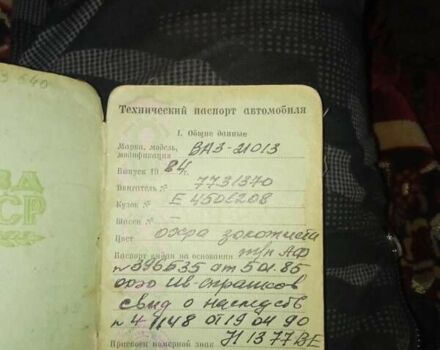 Технический паспорт автомобиля
I. Общие данные
Марка, модель, модификация ВАЗ-21013
Выпуск 1984 г.
Двигатель № 7731370
Кузов № Е 4502208
Шасси № —
Цвет охра золотист
Паспорт выдан на основании т/п АФ
№ 396535 от 5 01.85
свид о наследств
от 19 04 90
Присвоен номерной знак 1377ВЕ
ВА
СР